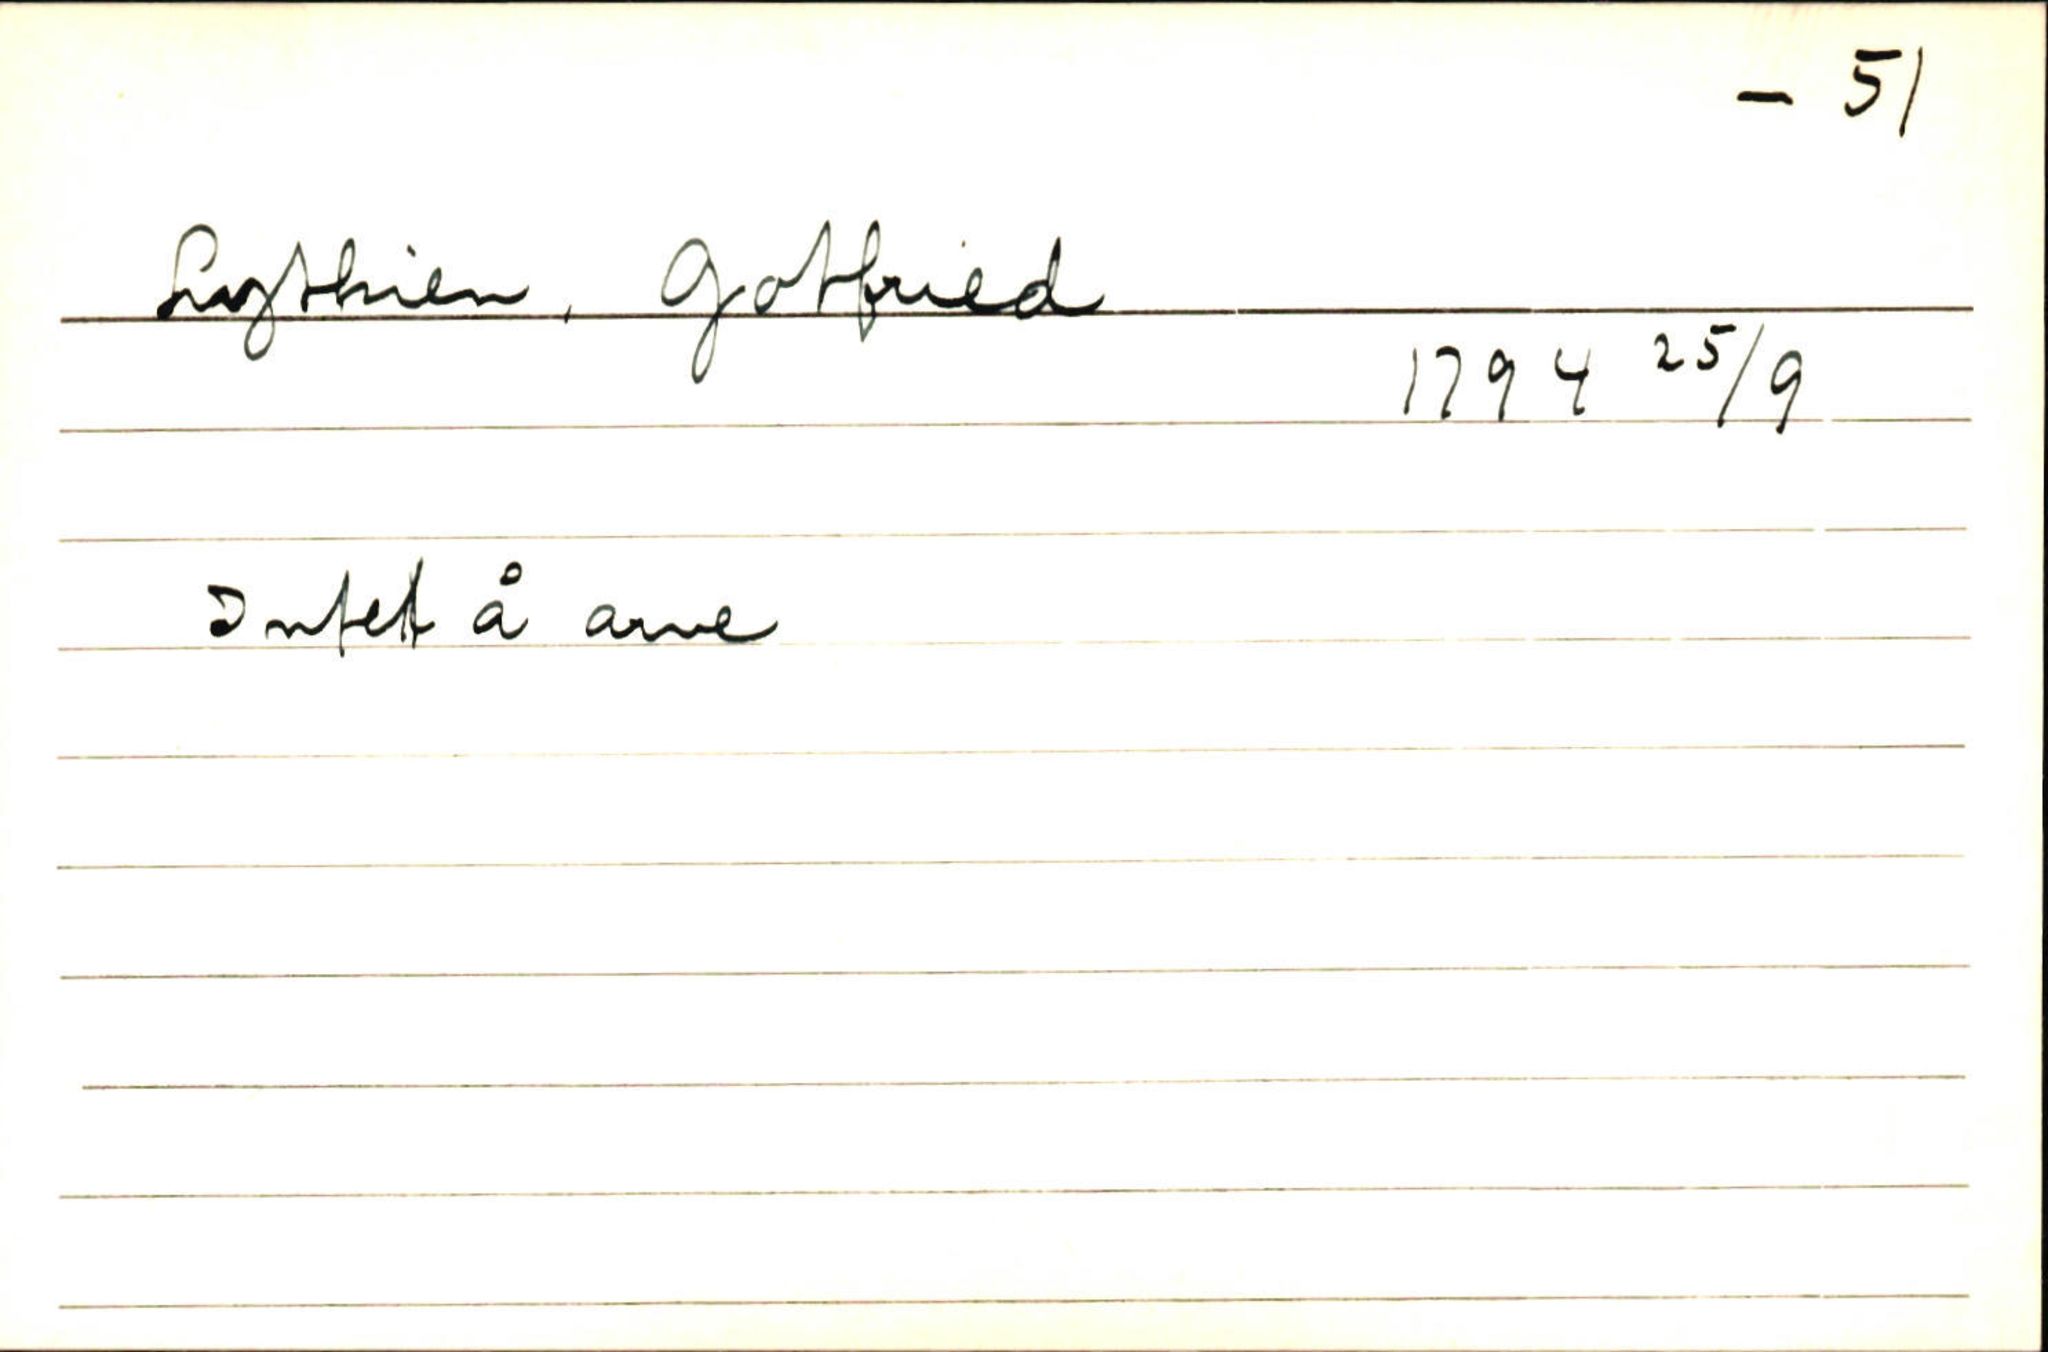 – 51
Lythien, Gotfried
1794 25/9
Intet å arve